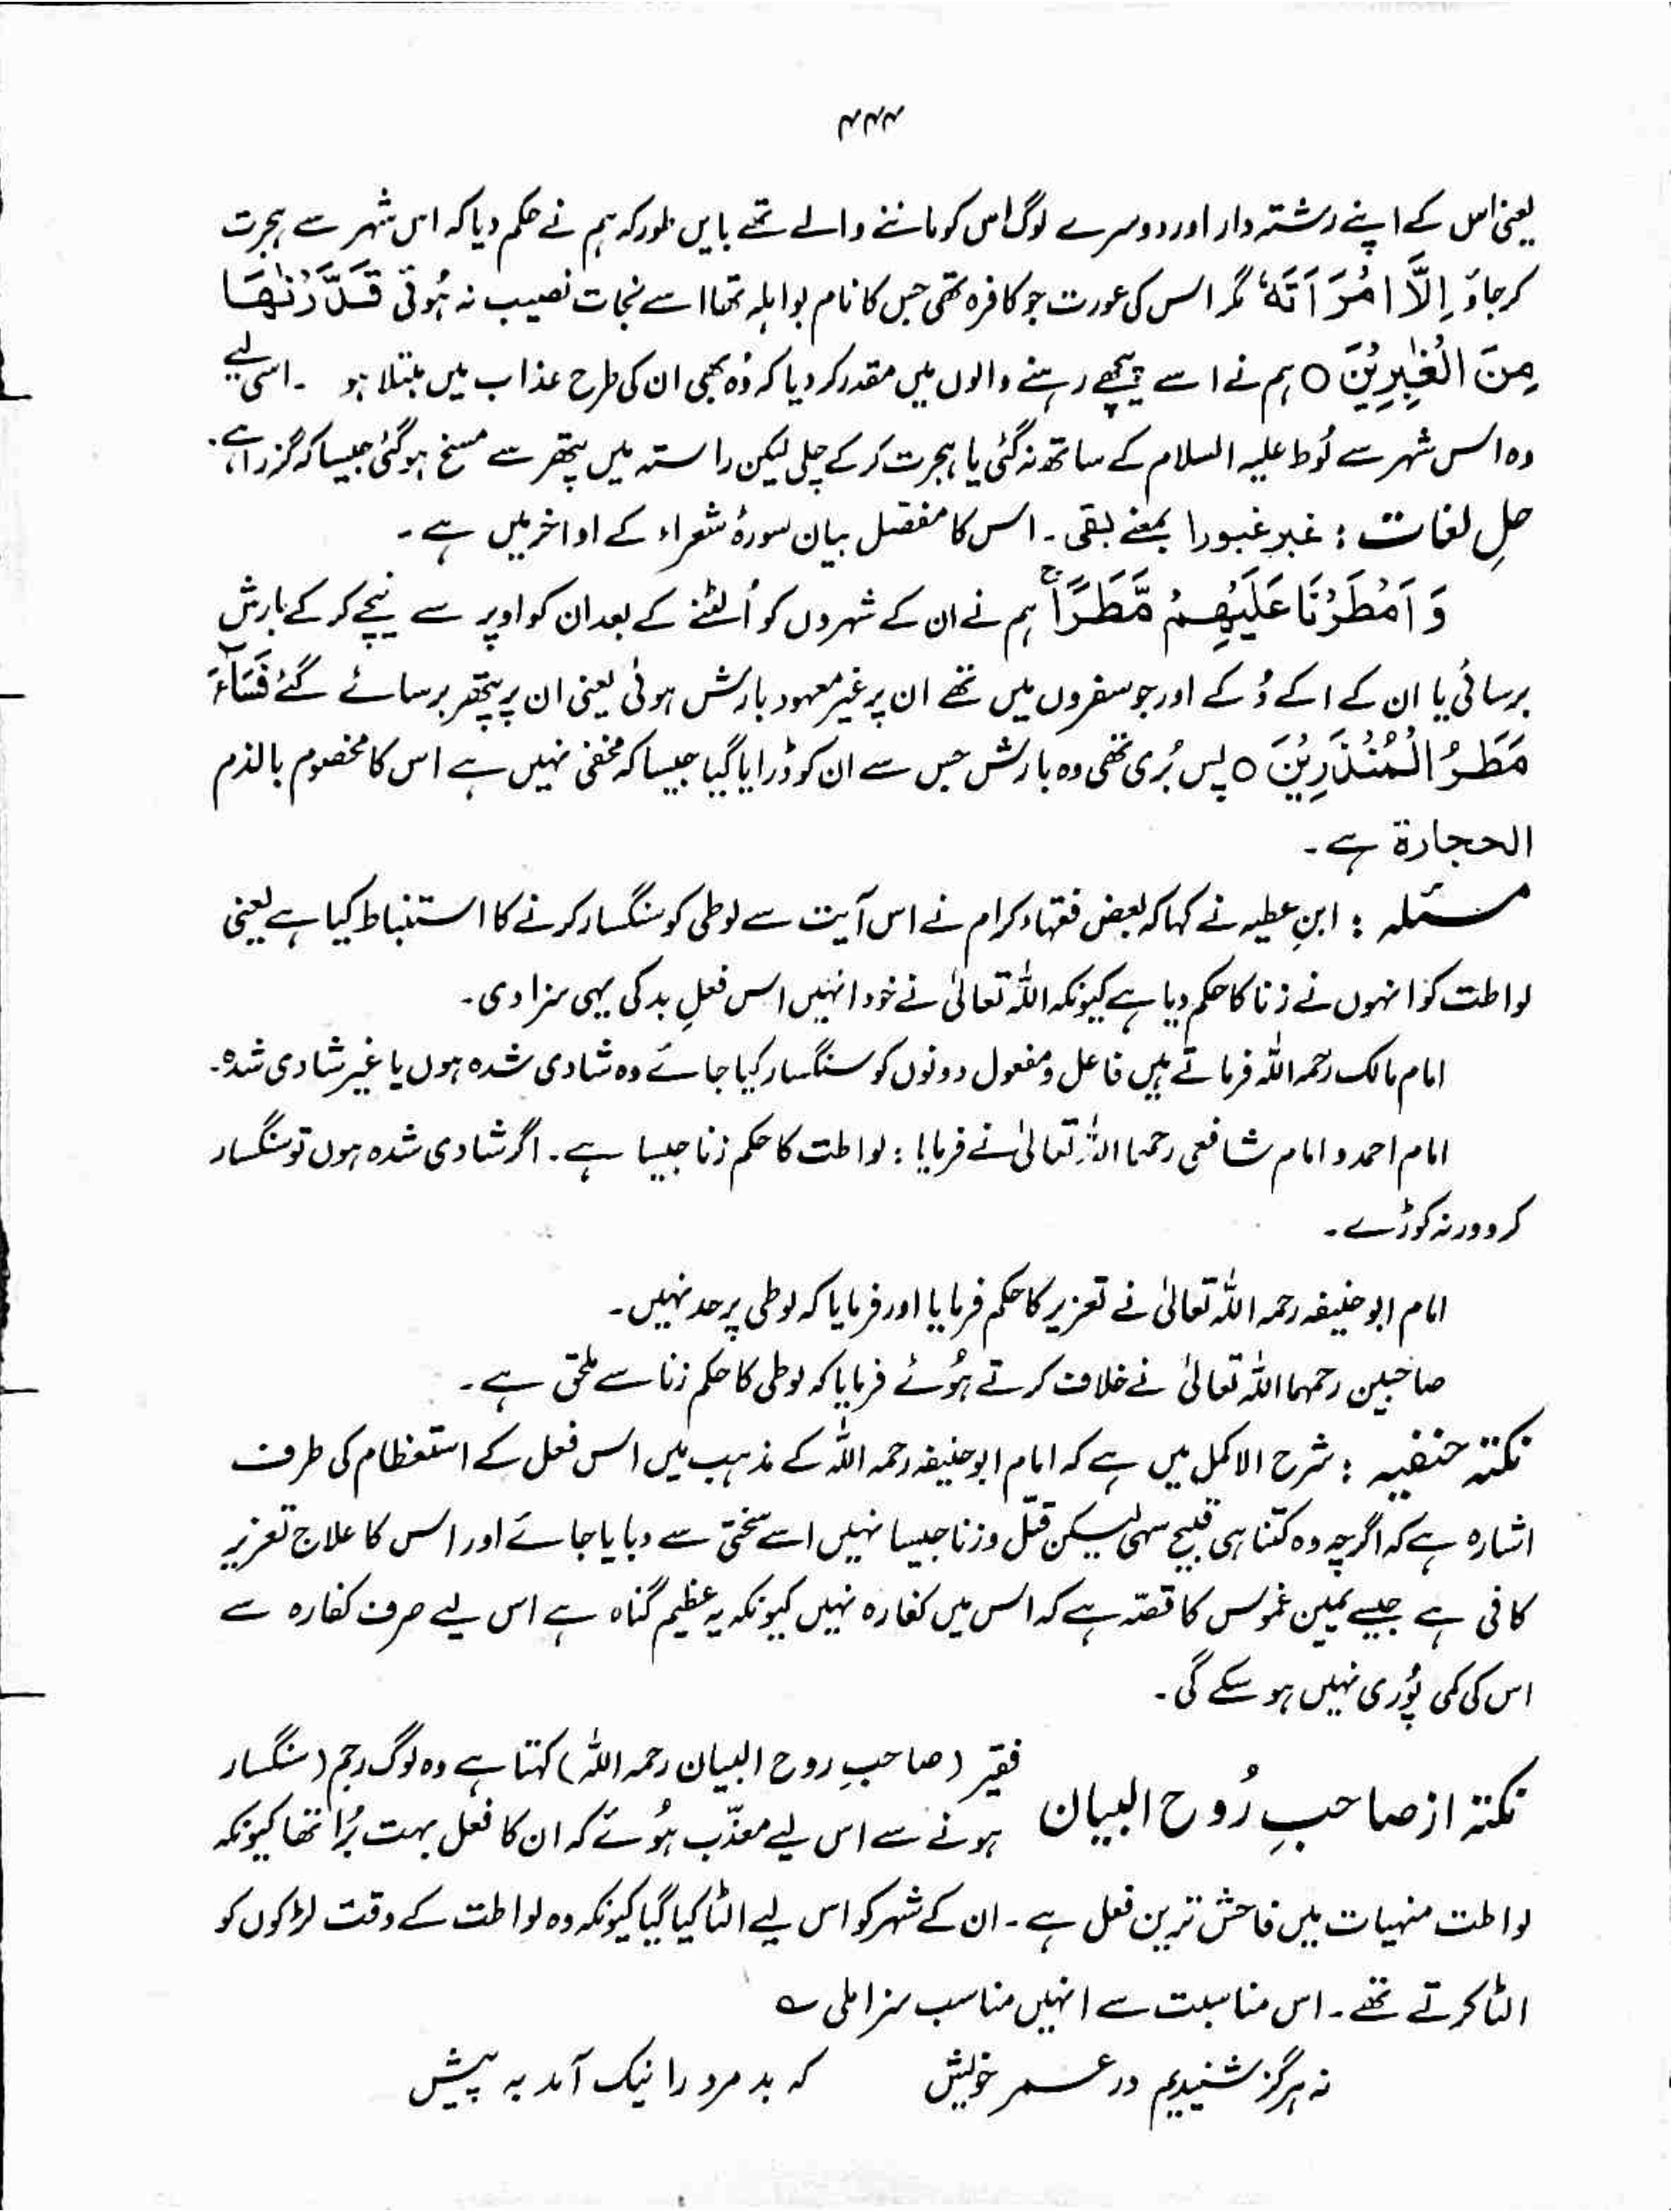 ۴۴۴
یعنی اس کے اپنے رشتہ دار اور دوسرے لوگ اس کو ماننے والے تھے بایں طور کہ ہم نے حکم دیا کہ اس شہر سے ہجرت
کر جاؤ اِلَّا امْرَاَتَهٗ مگر اس کی عورت جو کافرہ تھی جس کا نام بواہلہ تھا اسے نجات نصیب نہ ہُوئی قَدَّرْنٰهَا
مِنَ الْغٰبِرِيْنَ ○ ہم نے اسے پیچھے رہنے والوں میں مقدر کر دیا کہ وُہ بھی ان کی طرح عذاب میں مبتلا ہو ۔ اسی لیے
وہ اس شہر سے لُوط علیہ السلام کے ساتھ نہ گئی یا ہجرت کر کے چلی لیکن راستہ میں پتھر سے مسخ ہوگئی جیسا کہ گزرا ہے۔
حلِ لغات : غبر غبورا بمعنے بقی ۔ اس کا مفصّل بیان سورۂ شعراء کے اواخر میں ہے ۔
وَ اَمْطَرْنَا عَلَيْهِمْ مَّطَرًا ج ہم نے ان کے شہروں کو اُلٹنے کے بعد ان کو اوپر سے نیچے کر کے بارش
برسائی یا ان کے اکے دُکے اور جو سفروں میں تھے ان پر غیر معہود بارش ہوئی یعنی ان پر پتھر برسائے گئے فَسَآءَ
مَطَرُ الْمُنْذَرِيْنَ ○ پس بُری تھی وہ بارش جس سے ان کو ڈرایا گیا جیسا کہ مخفی نہیں ہے اس کا مخصوم بالذم
الحجارة ہے ۔
مسئلہ : ابنِ عطیہ نے کہا کہ بعض فقہاء کرام نے اس آیت سے لوطی کو سنگسار کرنے کا استنباط کیا ہے یعنی
لواطت کو انہوں نے زنا کا حکم دیا ہے کیونکہ اللہ تعالیٰ نے خود انہیں اس فعلِ بد کی یہی سزا دی ۔
امام مالک رحمہ اللہ فرماتے ہیں فاعل و مفعول دونوں کو سنگسار کیا جائے وہ شادی شدہ ہوں یا غیر شادی شدہ۔
امام احمد و امام شافعی رحمہما اللہ تعالیٰ نے فرمایا : لواطت کا حکم زنا جیسا ہے ۔ اگر شادی شدہ ہوں تو سنگسار
کرو ورنہ کوڑے ۔
امام ابوحنیفہ رحمہ اللہ تعالیٰ نے تعزیر کا حکم فرمایا اور فرمایا کہ لوطی پر حد نہیں ۔
صاحبین رحمہما اللہ تعالیٰ نے خلاف کرتے ہُوئے فرمایا کہ لوطی کا حکم زنا سے ملحق ہے ۔
نکتہ حنفیہ : شرح الاکمل میں ہے کہ امام ابوحنیفہ رحمہ اللہ کے مذہب میں اس فعل کے استعظام کی طرف
اشارہ ہے کہ اگرچہ وہ کتنا ہی قبیح سہی لیکن قتل و زنا جیسا نہیں اسے سختی سے دبایا جائے اور اس کا علاج تعزیر
کافی ہے جیسے یمین غموس کا قصّہ ہے کہ اس میں کفارہ نہیں کیونکہ یہ عظیم گناہ ہے اس لیے صرف کفارہ سے
اس کی کمی پُوری نہیں ہو سکے گی ۔
نکتہ از صاحبِ رُوح البیان فقیر (صاحبِ روح البیان رحمہ اللہ) کہتا ہے وہ لوگ رجم (سنگسار
ہونے سے اس لیے معذّب ہُوئے کہ ان کا فعل بہت بُرا تھا کیونکہ
لواطت منہیات میں فاحش ترین فعل ہے ۔ ان کے شہر کو اس لیے الٹا کیا گیا کیونکہ وہ لواطت کے وقت لڑکوں کو
الٹا کرتے تھے ۔ اس مناسبت سے انہیں مناسب سزا ملی ؎
نہ ہرگز شنیدیم در عمر خویش کہ بد مرد را نیک آمد بہ پیش